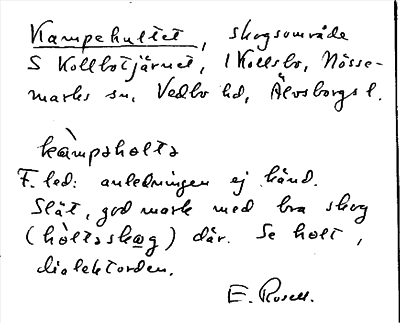 Kampehultet, skogsområde
S Kollbotjärnet, i Kollsbo, Nösse-
marks sn, Vedbo hd, Älvsborgs l.
kàmpəhòltə
F. led: anledningen ej känd.
Slät, god mark med bra skog
(hòltəskog) där. Se holt,
dialektorden.
E. Rosell.